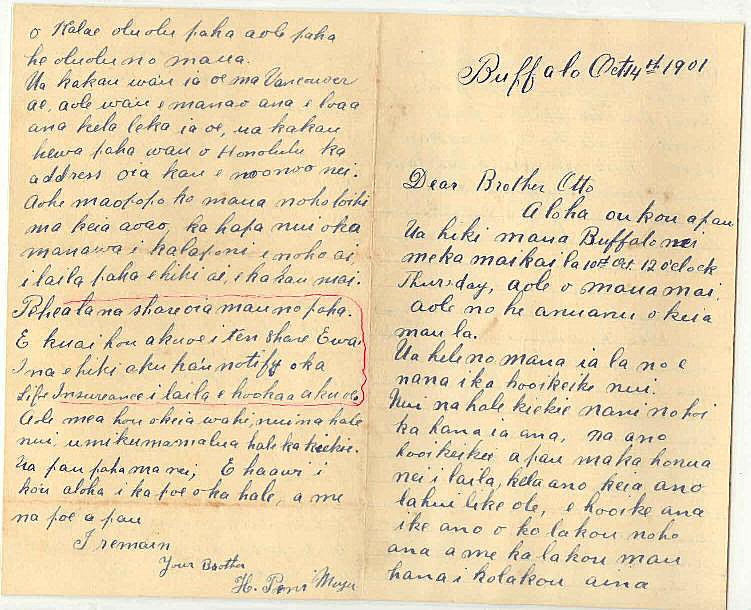 Buffalo Oct 14th 1901
Dear Brother Otto
Aloha oukou apau
Ua hiki maua Buffalo nei
meka maikai la 10th Oct. 12 o'clock
Thursday, aole o maua mai.
aole no he anuanu o keia
mau la.
Ua hele no maua ia la no e
nana i ka hooikeike nui.
Nui na hale kiekie nani no hoi
ka hana ia ana, na ano
hooikeike apau maka honua
nei i laila, kela ano keia ano
lahui like ole, e hooike ana
ike ano o ko lakou noho
ana a me ka lakou mau
hana i ko lakou aina
o Kalae oluolu paha aole paha
he oluolu no maua.
Ua kakau wau ia oe ma Vancouver
ae, aole wau e manao ana e loaa
ana kela leka ia oe, ua kakau
hewa paha wau o Honolulu ka
address oia kau e noonoo nei.
Aohe maopopo ko maua noho loihi
ma keia aoao, ka hapa nui oka
manawa i Kalaponi e noho ai,
i laila paha e hiki ai, e kakau mai.
Pehea la na share oia mau no paha.
E kuai hou aku oe i ten share Ewa.
Ina e hiki aku ka'u notify oka
Life Insureance i laila e hookaa aku oe
Aole mea hou o keia wahi, nui na hale
nui, umikumamalua hale ka kiekie.
Ua pau paha ma nei, E haawi i
ko'u aloha i ka poe o ka hale, a me
na poe apau
I remain
Your Brother
H. Meyer